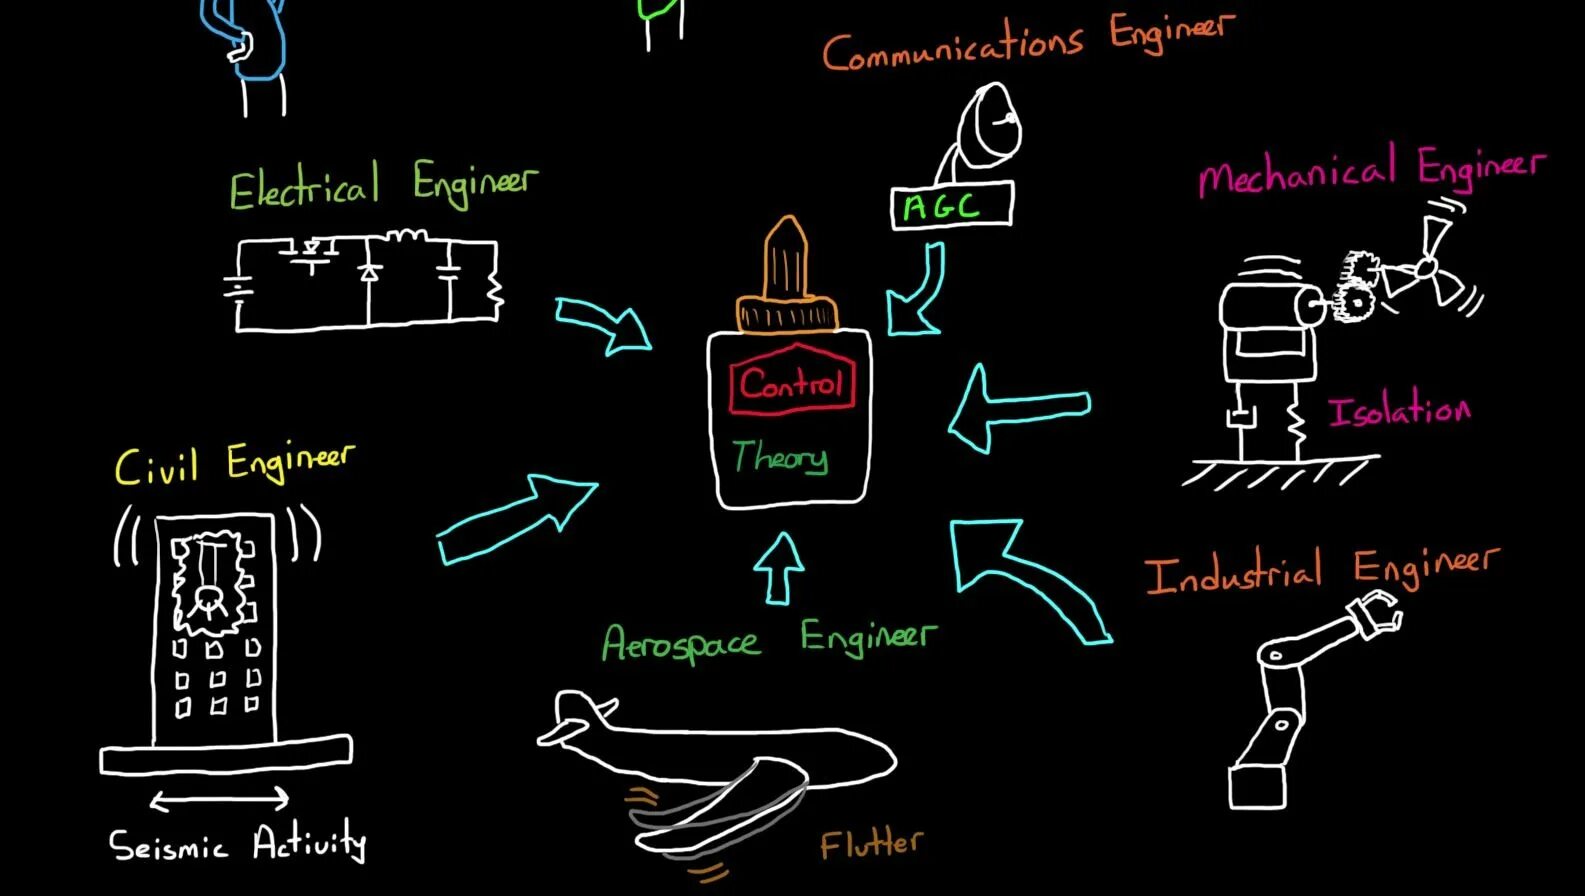 Communications Engineer
AGC
Electrical Engineer
Mechanical Engineer
Isolation
Control
Theory
Civil Engineer
Seismic Activity
Aerospace Engineer
Flutter
Industrial Engineer